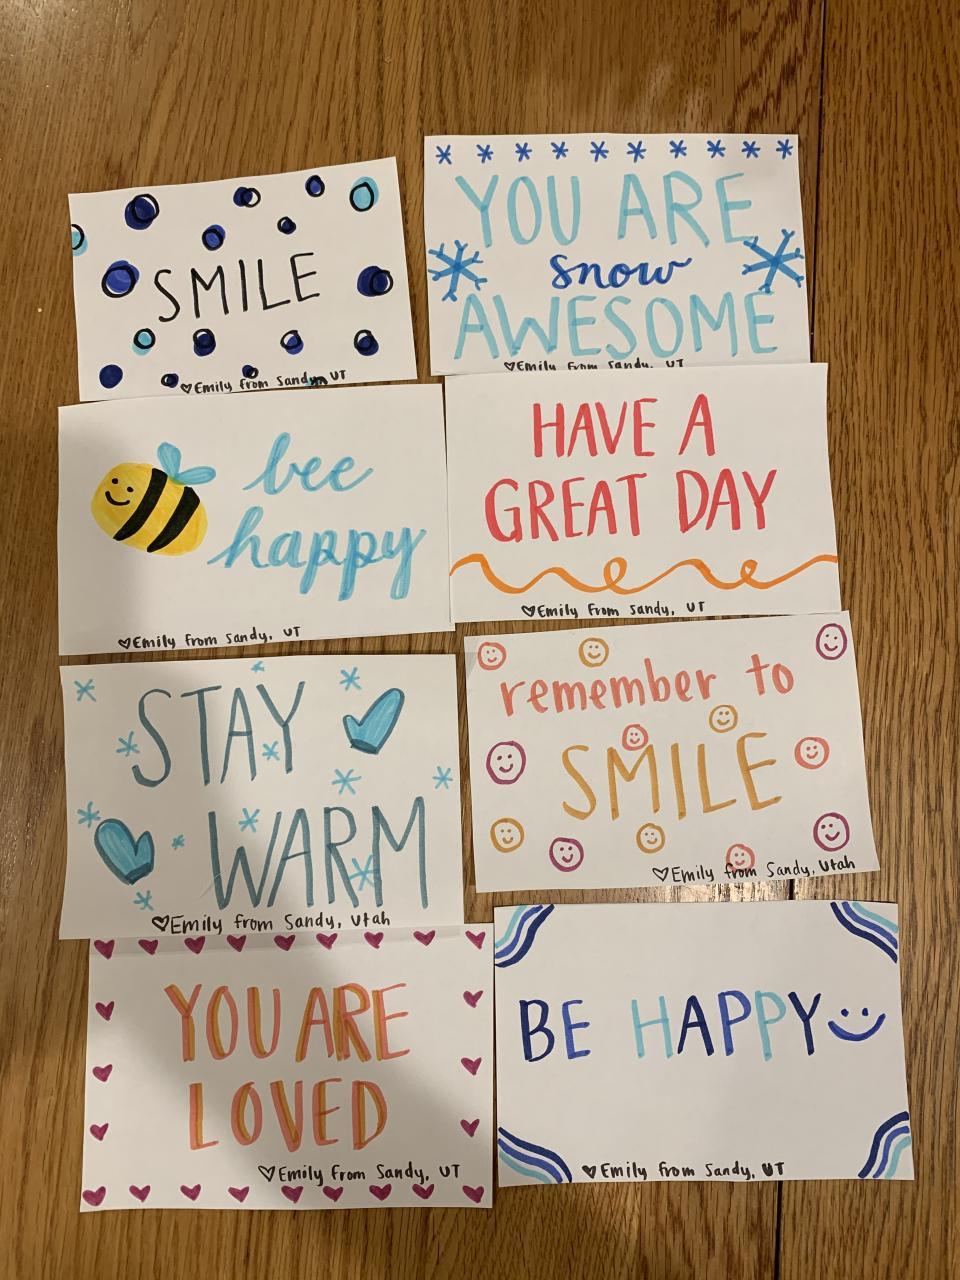 SMILE
♡Emily from Sandy, UT
YOU ARE
snow
AWESOME
♡Emily from Sandy, UT
bee
happy
♡Emily from Sandy, UT
HAVE A
GREAT DAY
♡Emily from Sandy, UT
STAY
WARM
♡Emily from Sandy, Utah
remember to
SMILE
♡Emily from Sandy, Utah
YOU ARE
LOVED
♡Emily from Sandy, UT
BE HAPPY
♡Emily from Sandy, UT